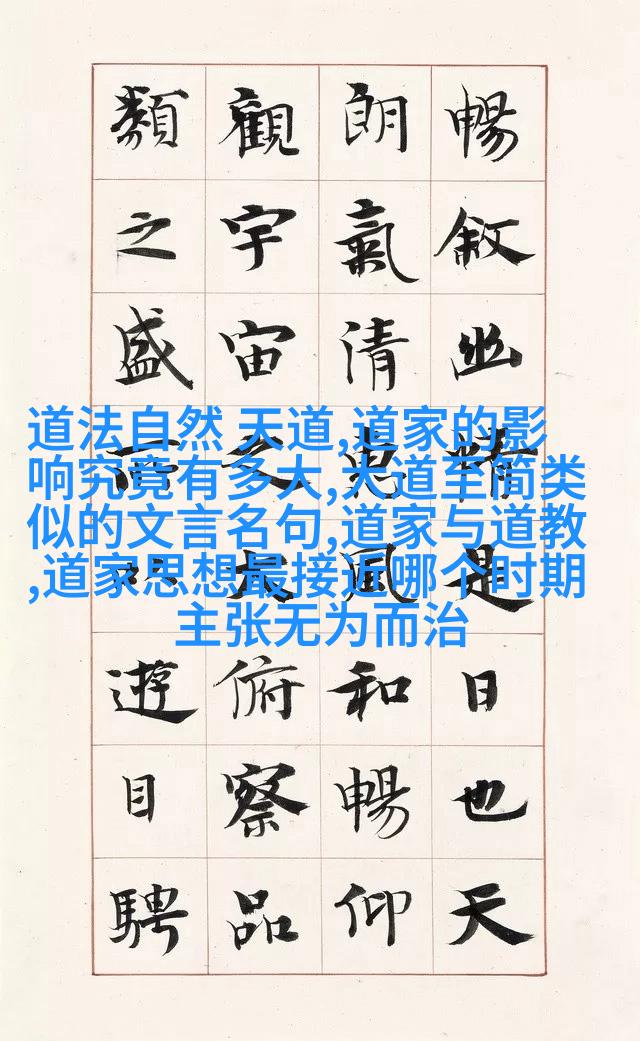 暢敘幽情是日也天
朗氣清惠風和暢仰
觀宇宙之大俯察品
類之盛所以遊目騁
道法自然 天道,道家的影
响究竟有多大,大道至简类
似的文言名句,道家与道教
,道家思想最接近哪个时期
主张无为而治